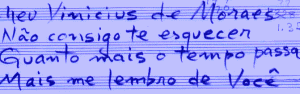 heu Vinicius de Moraes
Não consigo te esquecer
Quanto mais o tempo passa
Mais me lembro de Você